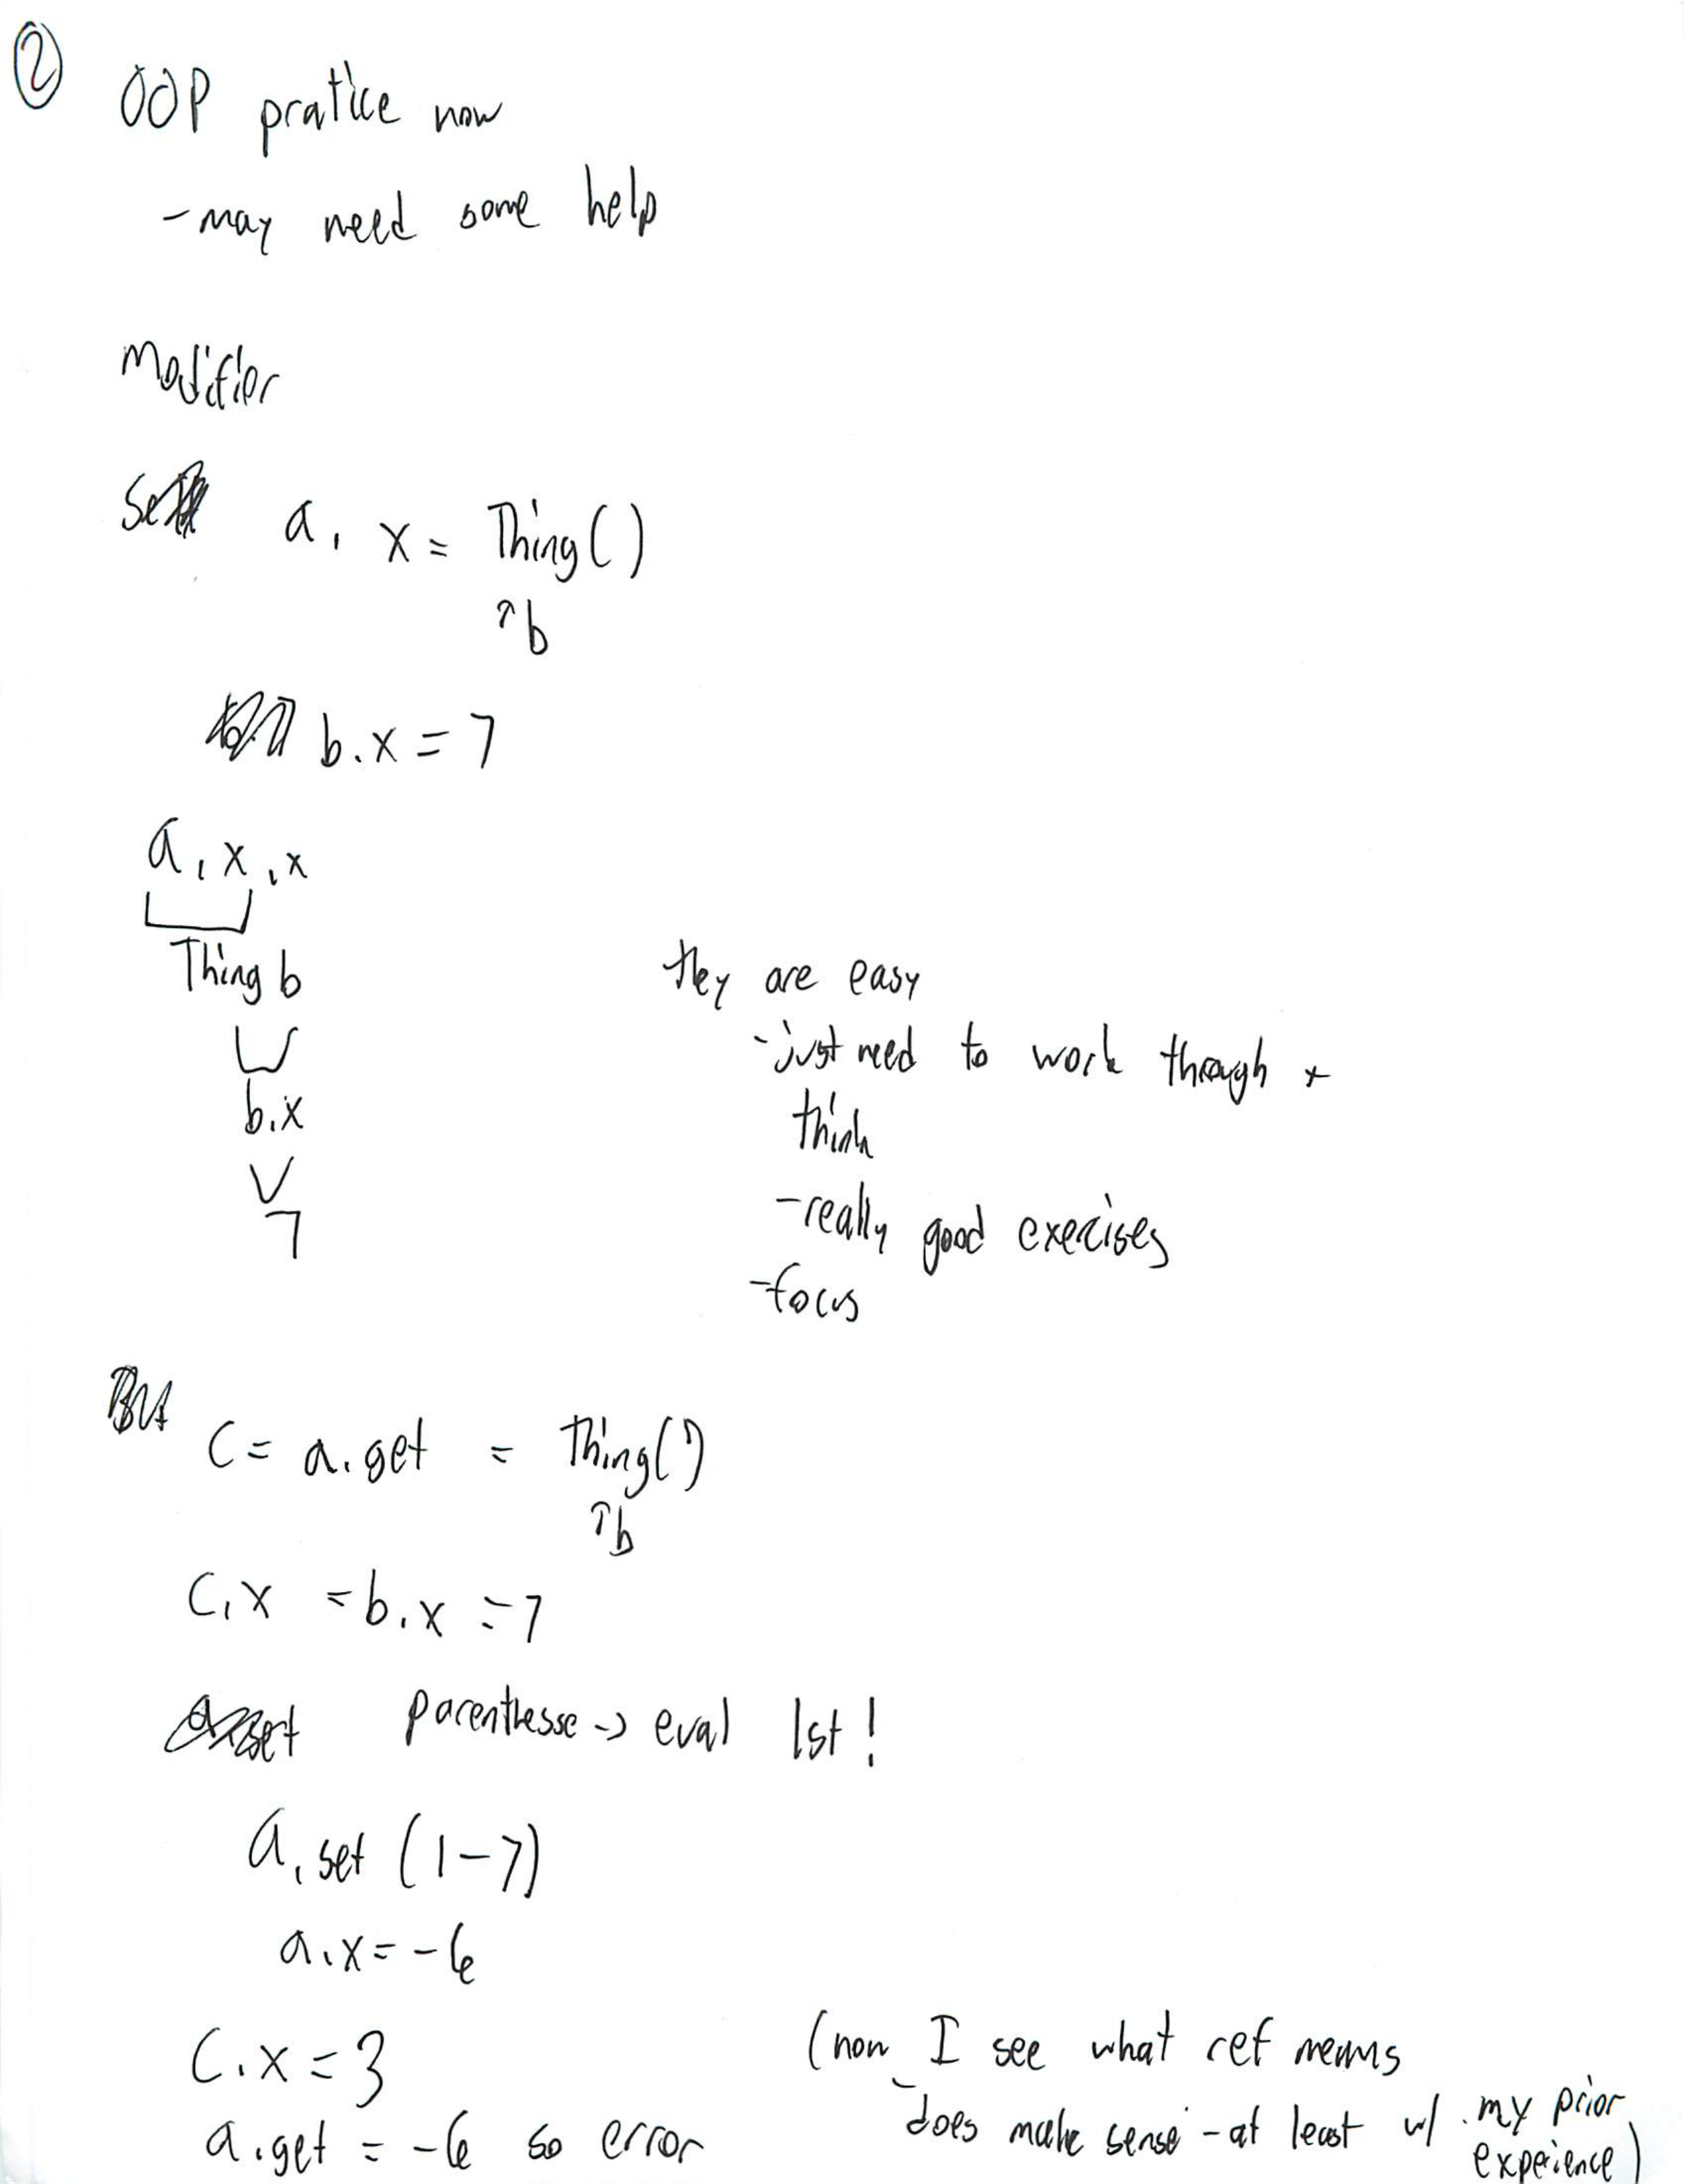 ②
OOP pratice now
- may need some help
Modifier
a. x = Thing()
↑b
b.x = 7
a.x.x
Thing b
b.x
7
they are easy
- just need to work through +
think
- really good exercises
- focus
But
C = a.get = Thing()
↑b
C.x = b.x = 7
parenthesse → eval 1st!
a.set (1-7)
a.x = -6
C.x = 3
a.get = -6 so error
(now I see what ref means
- does make sense - at least w/ my prior
experience)